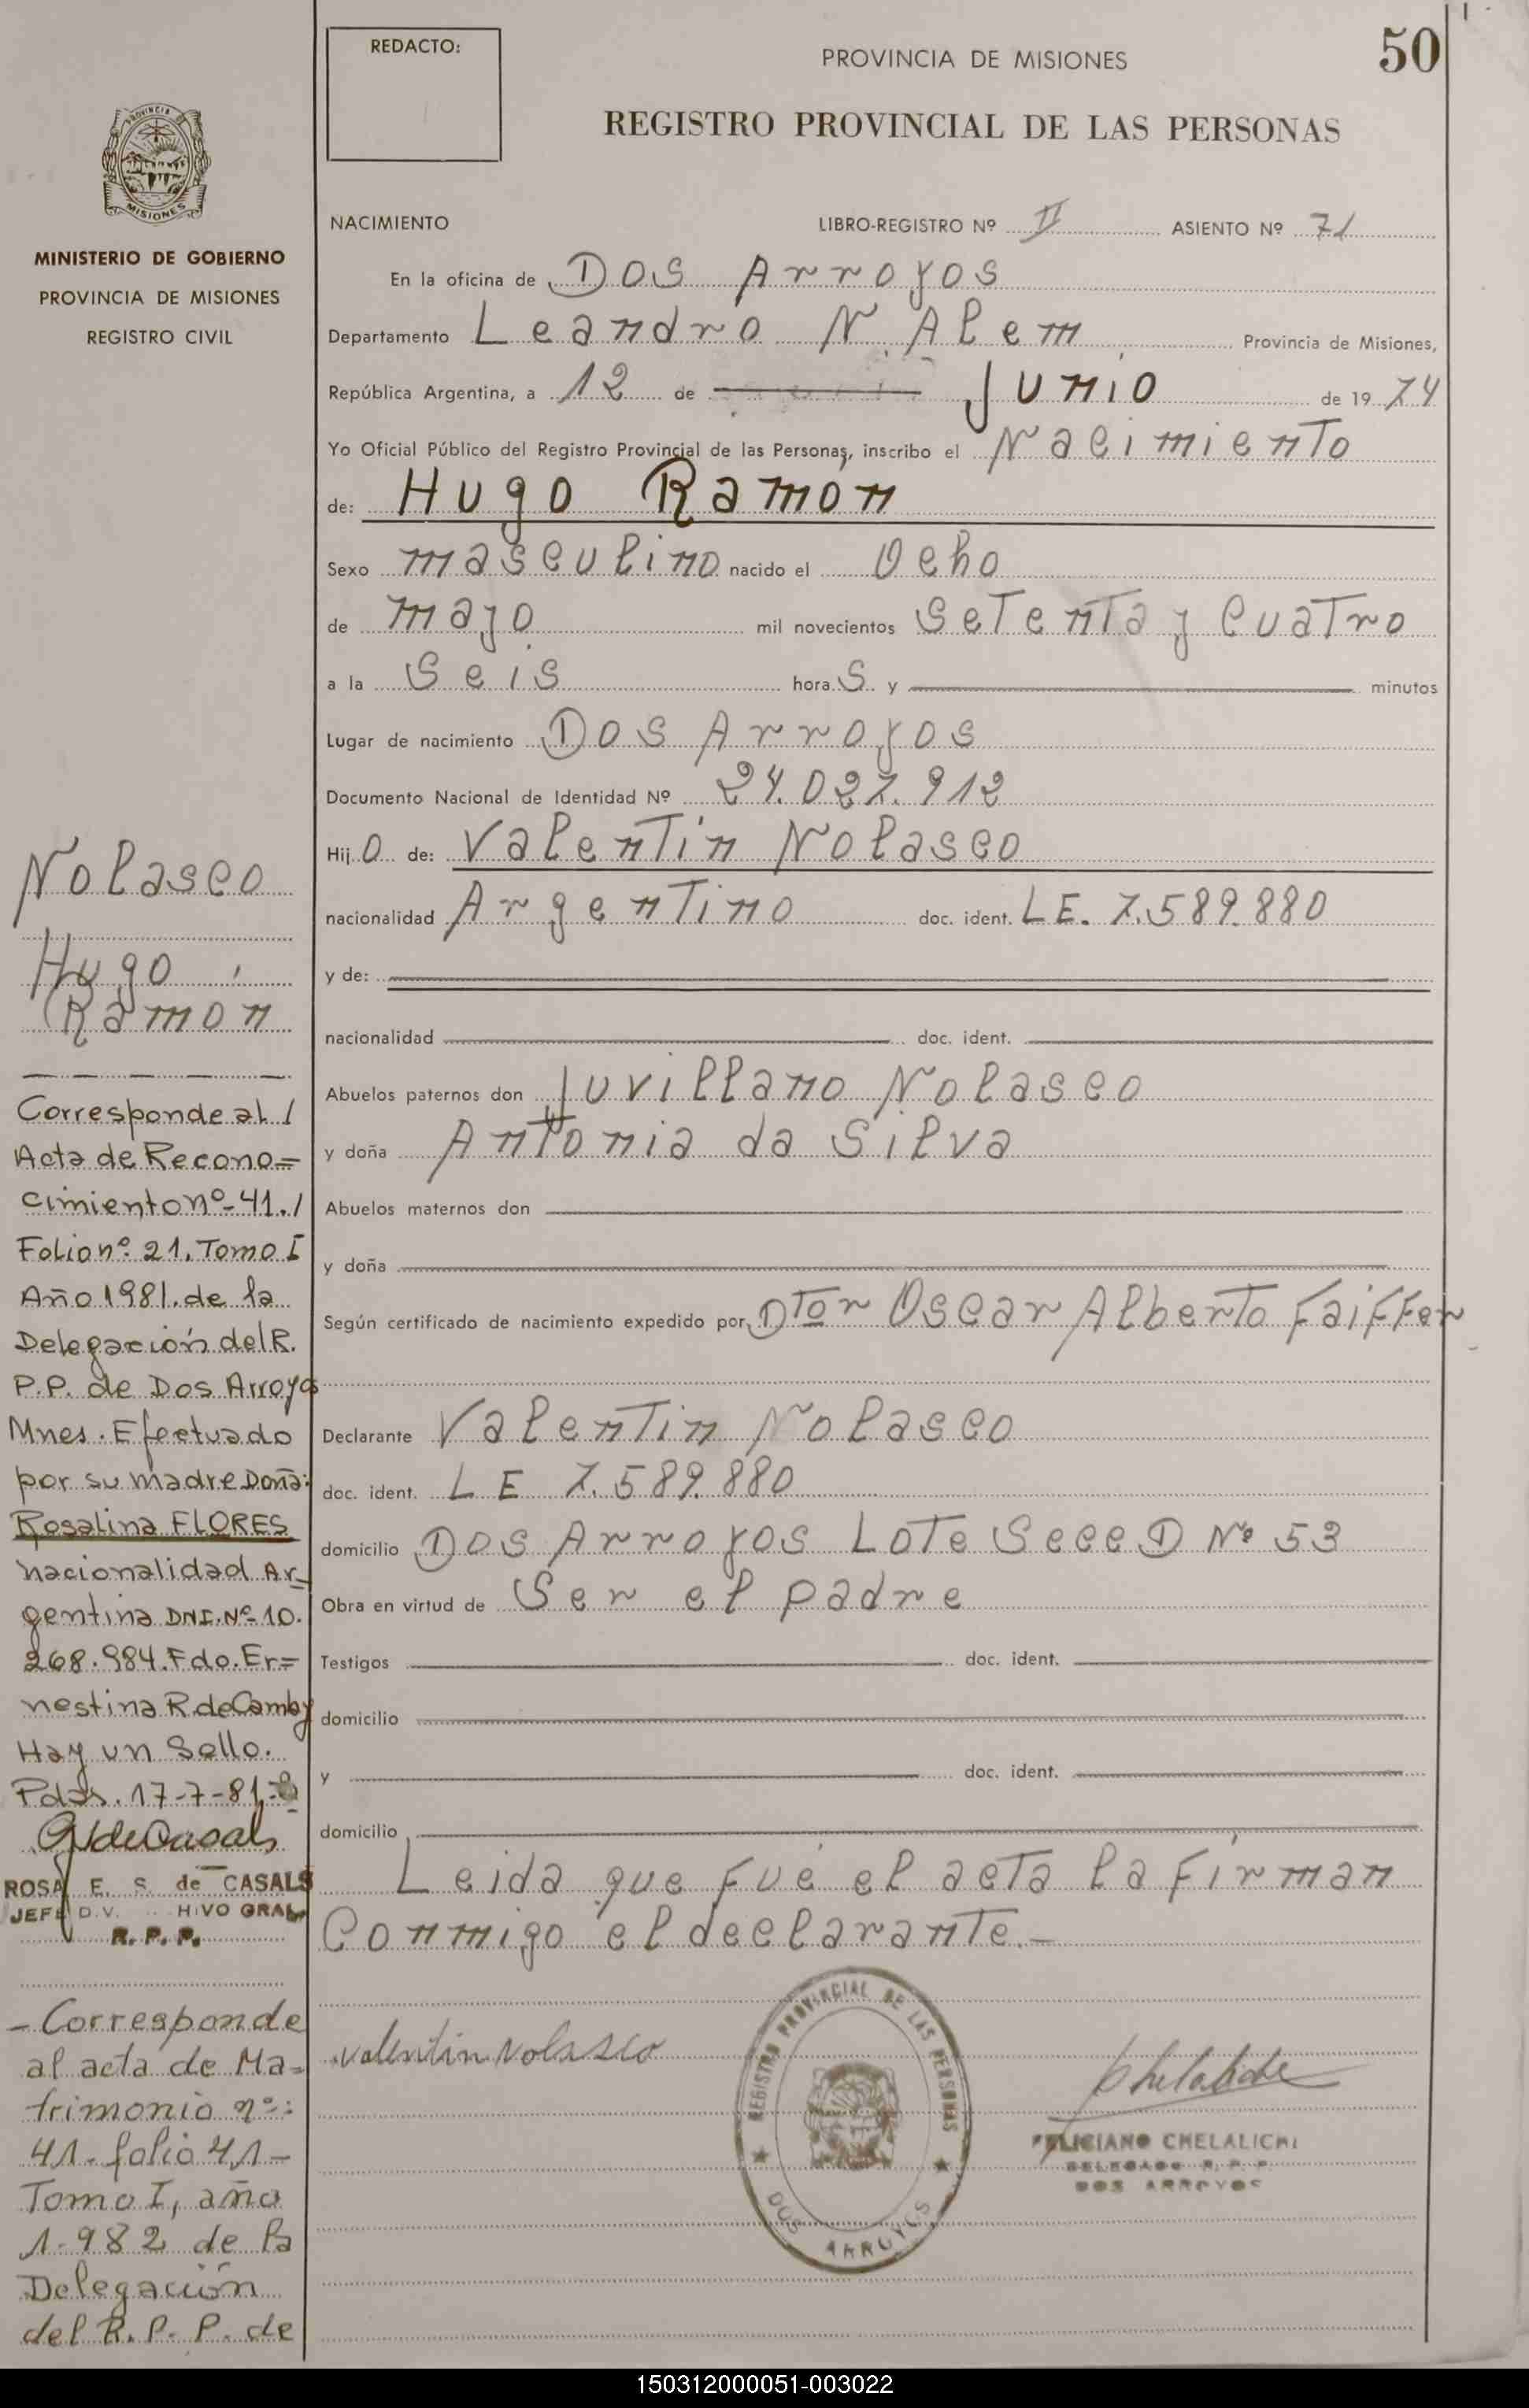 REDACTO:
PROVINCIA DE MISIONES
50
REGISTRO PROVINCIAL DE LAS PERSONAS
PROVINCIA DE
MISIONES
MINISTERIO DE GOBIERNO
PROVINCIA DE MISIONES
REGISTRO CIVIL
NACIMIENTO LIBRO-REGISTRO Nº II ASIENTO Nº 71
En la oficina de Dos Arroyos
Departamento Leandro N. Alem Provincia de Misiones,
República Argentina, a 12 de Junio de 1974
Yo Oficial Público del Registro Provincial de las Personas, inscribo el Nacimiento
de: Hugo Ramon
Sexo masculino nacido el Ocho
de mayo mil novecientos Setenta y Cuatro
a la Seis horaS y minutos
Lugar de nacimiento Dos Arroyos
Documento Nacional de Identidad Nº 24.027.912
Hijo de: Valentín Nolasco
nacionalidad Argentino doc. ident. L E. 7.589.880
y de:
nacionalidad doc. ident.
Abuelos paternos don Juvillano Nolasco
y doña Antonia da Silva
Abuelos maternos don
y doña
Según certificado de nacimiento expedido por Dtor Oscar Alberto Faiffer
Declarante Valentín Nolasco
doc. ident. L E 7.589.880
domicilio Dos Arroyos Lote Secc D Nº 53
Obra en virtud de Ser el padre
Testigos doc. ident.
domicilio
y doc. ident.
domicilio
Leida que fué el acta la firman
Conmigo el declarante.-
Valentin Nolasco
REGISTRO PROVINCIAL DE LAS PERSONAS
DOS ARROYOS
FELICIANO CHELALICHE
DELEGADO R. P. P.
DOS ARROYOS
Nolasco
Hugo
Ramon
Corresponde al /
Acta de Recono=
cimiento nº 41. /
Folio nº 21. Tomo I
Año 1981. de la
Delegación del R.
P.P. de Dos Arroyos
Mnes. Efectuado
por su madre Doña:
Rosalina FLORES
nacionalidad Ar-
gentina DNI. Nº 10.
268.984. Fdo. Er=
nestina R. de Camby
Hay un Sello.
Pdas. 17-7-81.-
ROSA E. S. de CASALS
JEFE DIV. ARCHIVO GRAL.
R. P. P.
- Corresponde
al acta de Ma-
trimonio nº:
41- folio 41-
Tomo I, año
1.982 de la
Delegación
del R. P. P. de
150312000051-003022